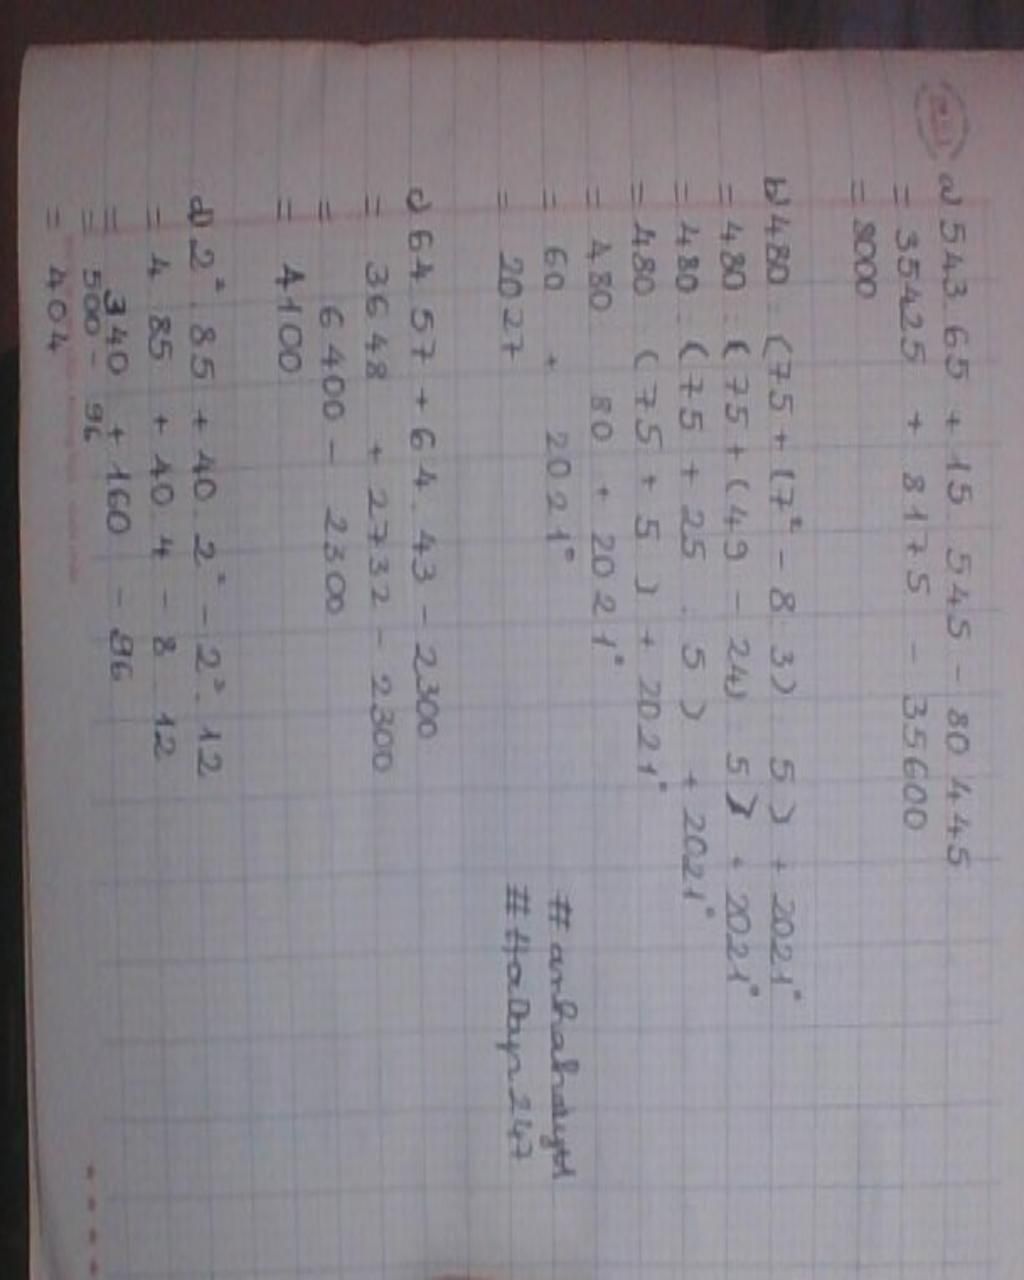 a) 543.65 + 15.545 - 80.445
= 35425 + 8175 - 35600
= 8000
b) 480 : (75 + (7² - 8.3) : 5) + 2021°
= 480 : (75 + (49 - 24) : 5) + 2021°
= 480 : (75 + 25 : 5) + 2021°
= 480 : (75 + 5) + 2021°
= 480 : 80 + 2021°
= 60 + 2021°
= 2027
c) 64.57 + 64.43 - 2300
= 3648 + 2732 - 2300
= 6400 - 2300
= 4100
d) 2².85 + 40.2² - 2³.12
= 4.85 + 40.4 - 8.12
= 340 + 160 - 96
= 500 - 96
= 404